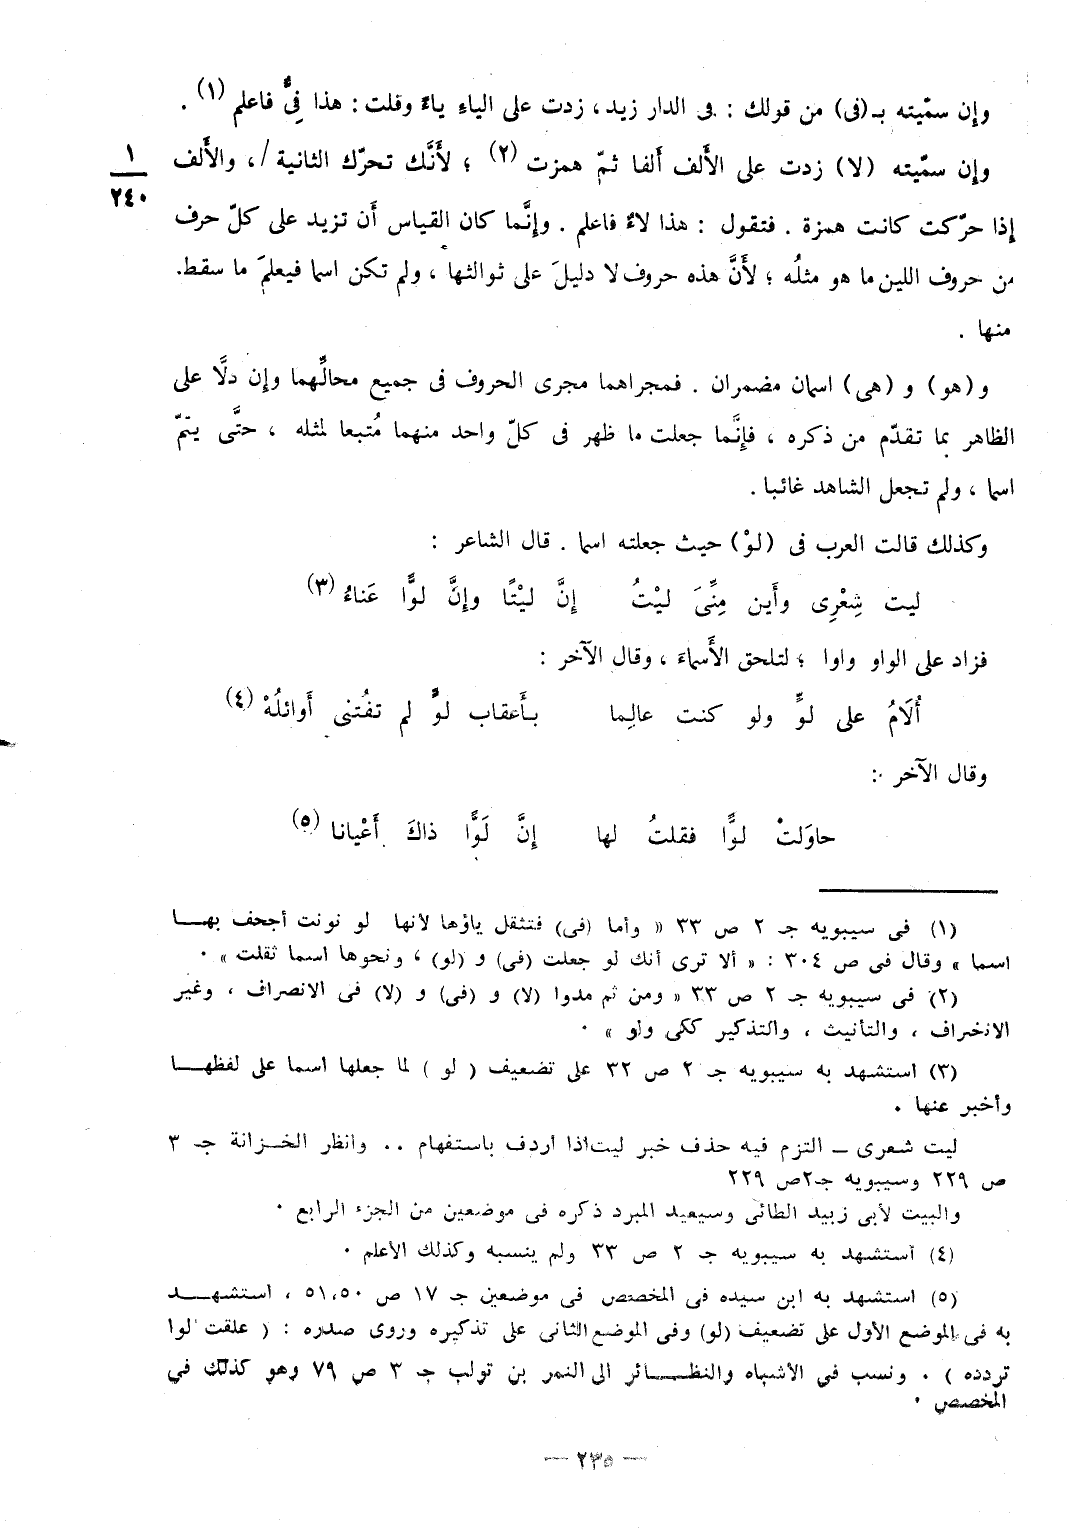 وإن سمّيته بـ(فى) من قولك : فى الدار زيد، زدت على الياءِ ياءً وقلت : هذا فِىٌّ فاعلم (١) .
وإن سمّيته (لا) زدت على الأَلف ألفا ثمّ همزت (٢) ؛ لأَنَّك تحرّك الثانية /، والأَلف
١
٢٤٠
إذا حرّكت كانت همزة . فتقول : هذا لاءٌ فاعلم . وإنَّما كان القياس أَن تزيد على كلّ حرف
من حروف اللين ما هو مثلُه ؛ لأَنَّ هذه حروف لا دليلَ على ثوالثها ، ولم تكن اسما فيعلمَ ما سقط.
منها .
و (هو) و (هى) اسمان مضمران . فمجراهما مجرى الحروف فى جميع محالِّهما وإن دلَّا على
الظاهر بما تقدّم من ذكره ، فإنَّما جعلت ما ظهر فى كلّ واحد منهما مُتبعا لمثله ، حتَّى يتمّ
اسما ، ولم تجعل الشاهد غائبا .
وكذلك قالت العرب فى (لوْ) حيث جعلته اسما . قال الشاعر :
ليت شِعْرِى وأَين مِنِّىَ ليْتُ إنَّ ليْتًا وإنَّ لوًّا عَناءُ (٣)
فزاد على الواو واوا ؛ لتلحق الأَسماءَ ، وقال الآخر :
أُلَامُ على لوٍّ ولو كنت عالِما بأَعقاب لوٍّ لم تفُتنى أَوائلُهْ (٤)
وقال الآخر :
حاوَلتْ لوًّا فقلتُ لها إنَّ لَوًّا ذاكَ أَعْيانا (٥)
(١) فى سيبويه جـ ٢ ص ٣٣ « وأما (فى) فتثقل ياؤها لأنها لو نونت أجحف بهـا
اسما » وقال فى ص ٣٠٤ : « ألا ترى أنك لو جعلت (فى) و (لو) ، ونحوها اسما ثقلت » .
(٢) فى سيبويه جـ ٢ ص ٣٣ « ومن ثم مدوا (لا) و (فى) و (لا) فى الانصراف ، وغير
الانخراف ، والتأنيث ، والتذكير ككى ولو » .
(٣) استشهد به سيبويه جـ ٢ ص ٣٢ على تضعيف ( لو ) لما جعلها اسما على لفظهـا
وأخبر عنها .
ليت شعرى ــ التزم فيه حذف خبر ليت اذا اردف باستفهام .. وانظر الخـزانة جـ ٣
ص ٢٢٩ وسيبويه جـ٢ص ٢٢٩
والبيت لأبى زبيد الطائى وسيعيد المبرد ذكره فى موضعين من الجزء الرابع .
(٤) استشهد به سيبويه جـ ٢ ص ٣٣ ولم ينسبه وكذلك الأعلم .
(٥) استشهد به ابن سيده فى المخصص فى موضعين جـ ١٧ ص ٥١،٥٠ ، استشهـد
به فى الموضع الأول على تضعيف (لو) وفى الموضع الثانى على تذكيره وروى صدره : ( علقت لوا
تردده ) . ونسب فى الأشباه والنظـائر الى النمر بن تولب جـ ٣ ص ٧٩ وهو كذلك في
المخصص .
— ٢٣٥ —